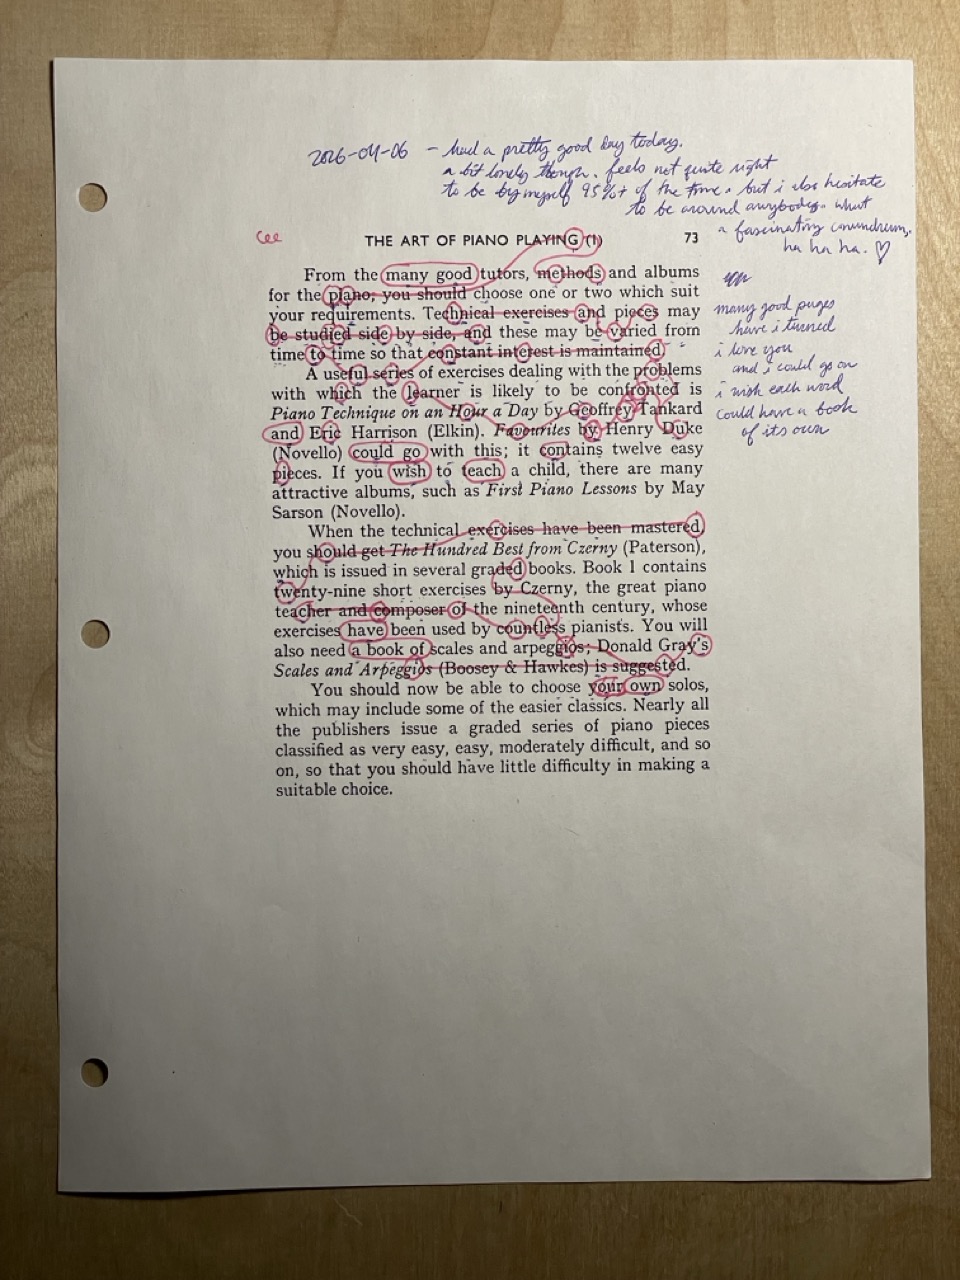 2026-04-06 - had a pretty good day today.
a bit lonely though. feels not quite right
to be by myself 95%+ of the time. but i also hesitate
to be around anybody. what
a fascinating conundrum,
ha ha ha. ♡
Cee
THE ART OF PIANO PLAYING (1) 73
From the many good tutors, methods and albums
for the piano; you should choose one or two which suit
your requirements. Technical exercises and pieces may
be studied side by side, and these may be varied from
time to time so that constant interest is maintained.
A useful series of exercises dealing with the problems
with which the learner is likely to be confronted is
Piano Technique on an Hour a Day by Geoffrey Tankard
and Eric Harrison (Elkin). Favourites by Henry Duke
(Novello) could go with this; it contains twelve easy
pieces. If you wish to teach a child, there are many
attractive albums, such as First Piano Lessons by May
Sarson (Novello).
When the technical exercises have been mastered,
you should get The Hundred Best from Czerny (Paterson),
which is issued in several graded books. Book 1 contains
twenty-nine short exercises by Czerny, the great piano
teacher and composer of the nineteenth century, whose
exercises have been used by countless pianists. You will
also need a book of scales and arpeggios; Donald Gray's
Scales and Arpeggios (Boosey & Hawkes) is suggested.
You should now be able to choose your own solos,
which may include some of the easier classics. Nearly all
the publishers issue a graded series of piano pieces
classified as very easy, easy, moderately difficult, and so
on, so that you should have little difficulty in making a
suitable choice.
many good pages
have i turned
i love you
and i could go on
i wish each word
could have a book
of its own